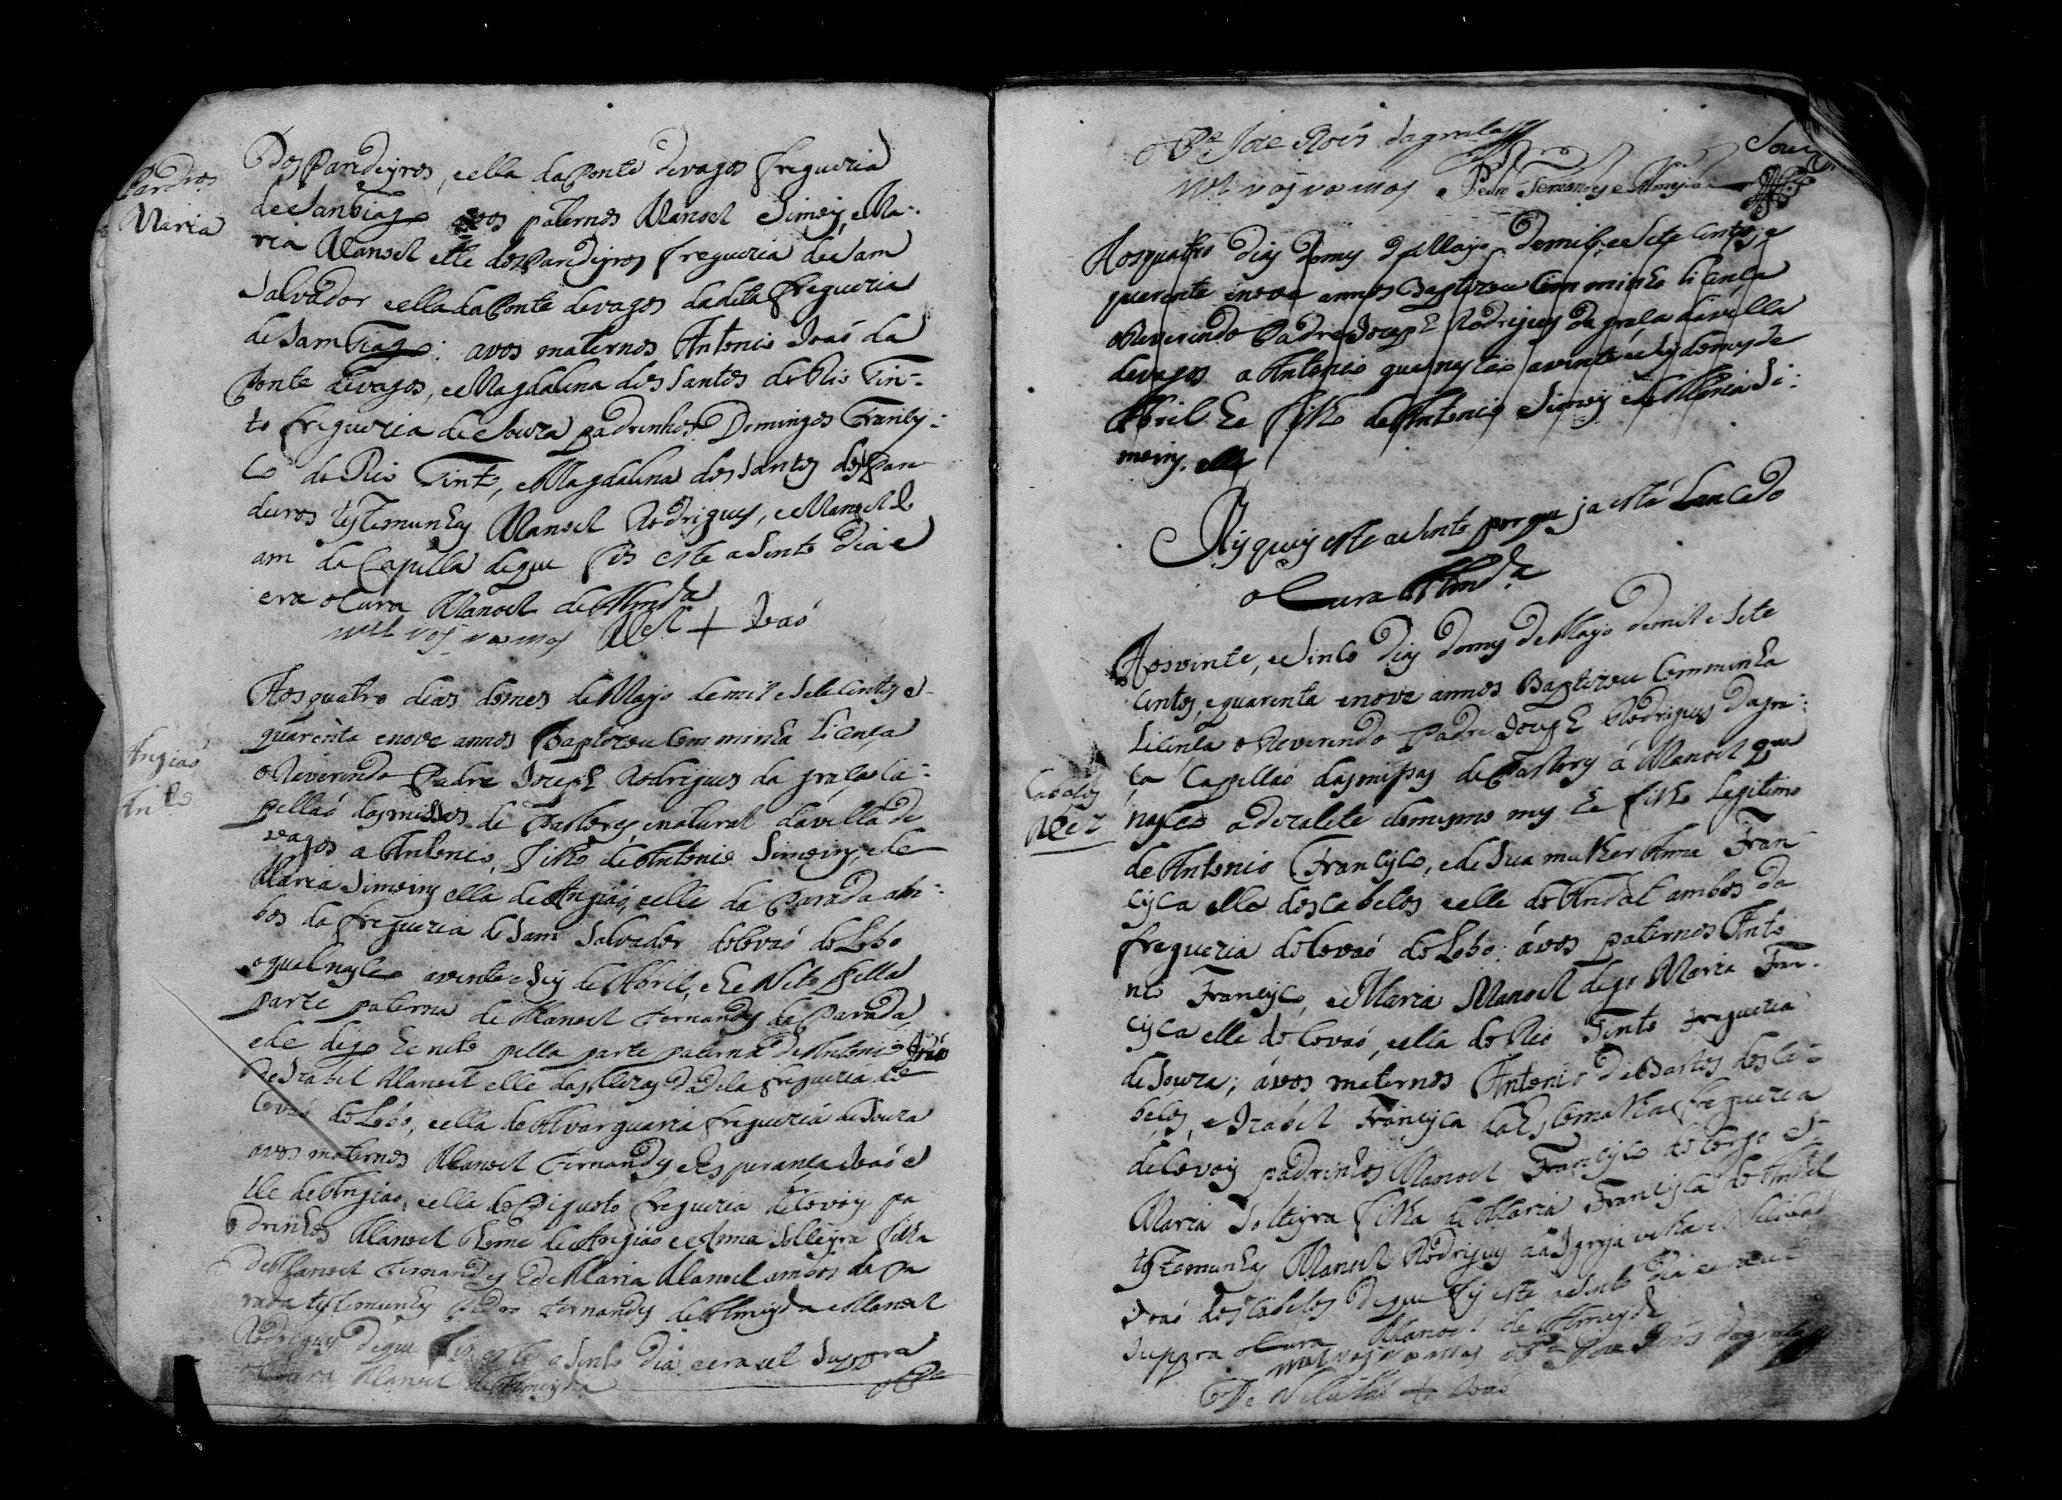 Pardros
Maria
dos Pardeyros, eella daPonte devagos freguezia
deSantiago avos paternos Manoel Simois, eMa-
ria Manoel elle dosPardeyros freguezia deSam
Salvador eella daPonte devagos dadita freguezia
deSamTiago: avos maternos Antonio Joaó da
Ponte devagos, eMagdalina dos Santos do Rio Tin-
to freguezia de Souza padrinhos Domingos Francis-
co do Rio Tinto, eMagdalina dos Santos dos Par
deiros testemunhas Manoel Rodrigues, eManoel Jo
am da Capella deque fis este asento dia e
era oCura Manoel deAlmda
Mel + Joaó
Angiaó
Anto
Aos quatro dias domes deMayo demil eSetecentos e
quarenta enove annos Baptizou Com minha Licença
oReverendo Padre Joseph Rodrigues da graça Ca-
pellaó dasmissas de Tastores, enatural davilla de
vagos a Antonio, filho deAntonio Simois, ede
Maria Simois ella deAngiaó, eelle da Parada am-
bos da freguezia de Sam Salvador deCovaó do Lobo
oqual nasceo avinte eSeis deAbril, he Neto pella
parte paterna de Manoel Fernandes da Parada,
ede digo he neto pella parte paterna deAntonio
Covaó do Lobo, eella deAlvarguaria freguezia deSouza
avos maternos Manoel Fernandes, eEsperança Joaó e
lle deAngiao, eella do freguezia deCovois pa
drinhos Manoel thome deAngiao eeAnna Solteyra filha
deManoel Fernandes EdeMaria Manoel ambos da Pa
rada testemunhas Pedro Fernandes deAlmeyda eManoel
Rodrigues deque fis este aSento dia eera ut Supra
oCura Manoel deAlmeyda
oPe
oPe Joze Rois dagraça
Pedro Fernandes eAlmeyda
Aosquatro dias domes deMayo demil, eSete Centos, e
quarenta enove annos Baptizou Com minha licença
oReverendo Padre Joseph Rodrigues da graça davilla
devagos a Antonio quenasceo avinte eseis domes de
Abril he filho deAntonio Simois edeMaria Si-
mois. elle
Risquey este aSento porque ja está Lancado
oCura Almda
Cabelos
Mel
Aosvinte, eSinco dias domes deMayo demil eSete
Centos, equarenta enove annos Baptizou Comminha
Licença oReverendo Padre Joseph Rodrigues dagra-
ça Capellaó dasmissas de Tastores á Manoel que
nasceo adezasete domesmo mes he filho Legitimo
deAntonio Francisco, edeSua mulher Anna Fran-
cisca elle dosCabelos eelle doAndal ambos da
freguezia doCovaó do Lobo: ávos paternos Anto
nio Francisco, eeMaria Manoel digo Maria Fran-
cisca elle do Covaó, eella do Rio Tinto freguezia
de Souza; ávos maternos Antonio deBastos dosCa-
belos, eIzabel Francisca freguezia
deCovois padrinhos Manoel Francisco e
Maria Solteyra filha deMaria Francisca doAndal
testemunhas Manoel Rodrigues daIgreja velha
Joaó dosCabelos deque fis este aSento dia eera ut
Supra oCura Manoel deAlmeyda
oPe Joze Rois dagraça
+ Joaó